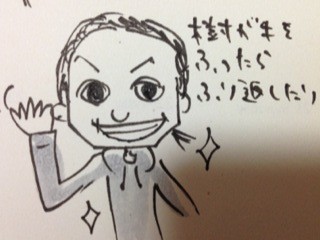 手を
ふったら
ふり返したり